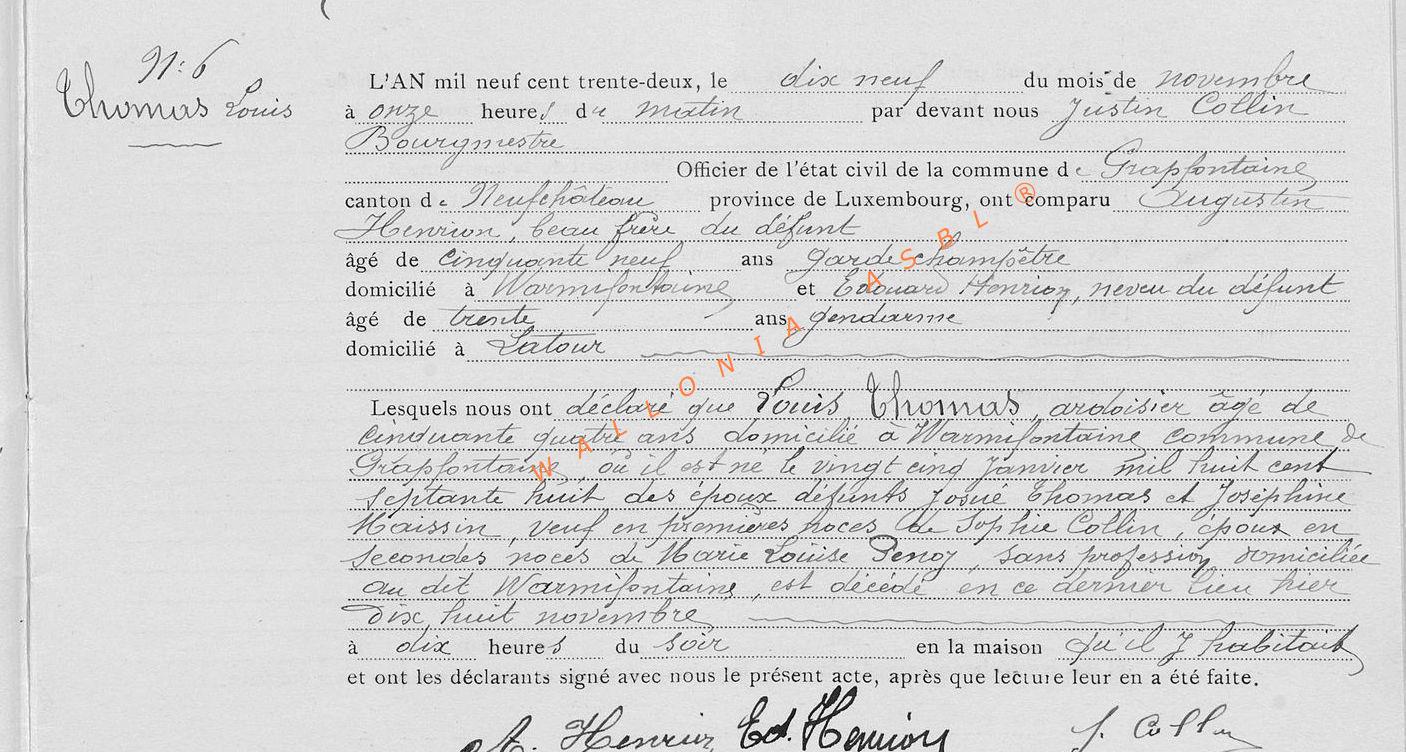 N° 6
Thomas Louis
L'AN mil neuf cent trente-deux, le dix neuf du mois de novembre
à onze heures du matin par devant nous Justin Collin
Bourgmestre
Officier de l'état civil de la commune de Grapfontaine
canton de Neufchâteau province de Luxembourg, ont comparu Augustin
Henrion, beau frère du défunt
âgé de cinquante neuf ans garde champêtre
domicilié à Warmifontaine et Edouard Henrion, neveu du défunt
âgé de trente ans gendarme
domicilié à Latour
Lesquels nous ont déclaré que Louis Thomas, ardoisier âgé de
cinquante quatre ans domicilié à Warmifontaine commune de
Grapfontaine, où il est né le vingt cinq Janvier mil huit cent
septante huit des époux défunts Josué Thomas et Joséphine
Maissin, veuf en premières noces de Sophie Collin, époux en
secondes noces de Marie Louise Penoy, sans profession domiciliée
au dit Warmifontaine, est décédé en ce dernier lieu hier
dix huit novembre
à dix heures du soir en la maison qu'il y habitait
et ont les déclarants signé avec nous le présent acte, après que lecture leur en a été faite.
A. Henrion Ed. Henrion J. Collin
WALLONIA ASBL ®